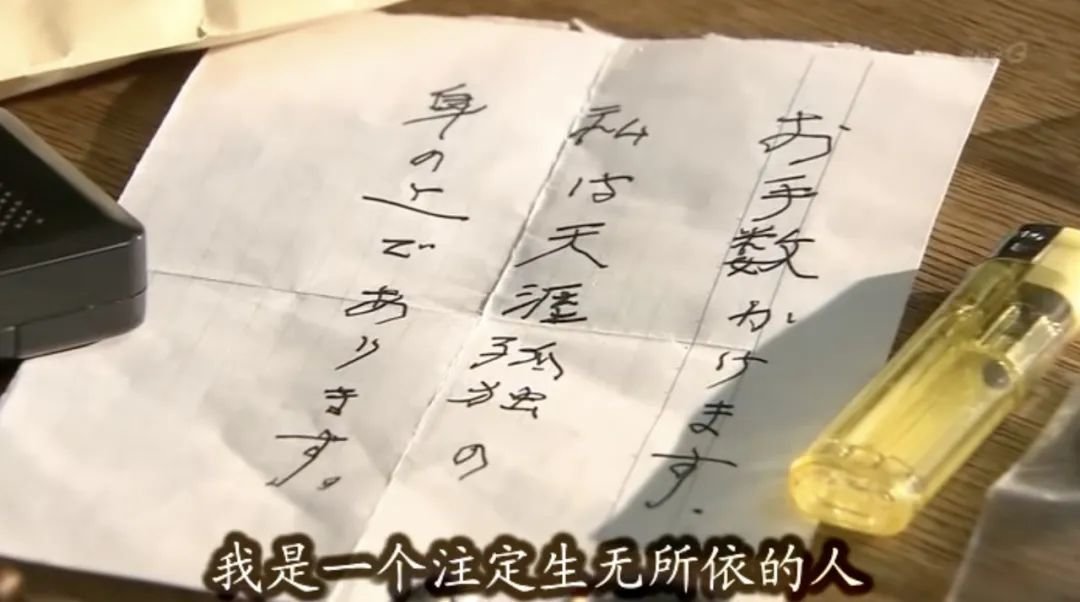 お手数かけます.
私は天涯孤独の
身の上であります。
我是一个注定生无所依的人